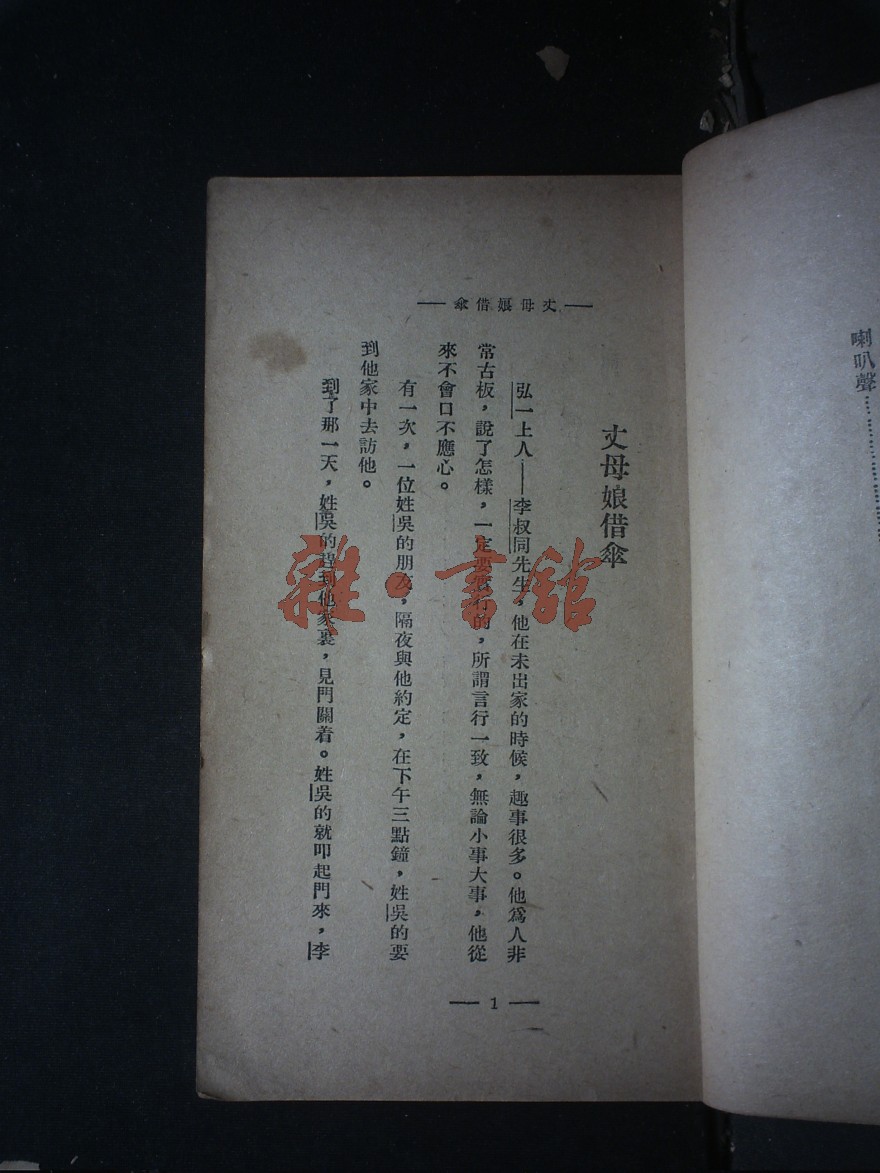 喇叭聲
丈母娘借傘
丈母娘借傘
弘一上人——李叔同先生，他在未出家的時候，趣事很多。他爲人非
常古板，說了怎樣，一定要實行的，所謂言行一致，無論小事大事，他從
來不會口不應心。
有一次，一位姓吳的朋友，隔夜與他約定，在下午三點鐘，姓吳的要
到他家中去訪他。
到了那一天，姓吳的趕到他家裏，見門關着。姓吳的就叩起門來，李
— 1 —
雜·書館